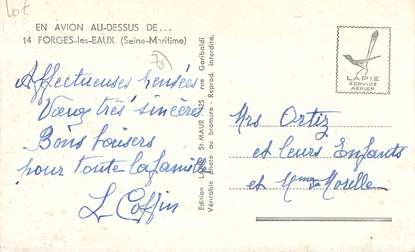 Lot
EN AVION AU-DESSUS DE...
14 FORGES-les-EAUX (Seine-Maritime)
76
Affectueuses pensées
Vœux très sincères
Bons baisers
pour toute la famille
L Coffin
Edition LAPIE St-MAUR rue Garibaldi
Véritable photo au bromure - Reprod. interdite.
LAPIE
SERVICE
AERIEN
Mrs Ortiz
et leurs Enfants
et Moselle